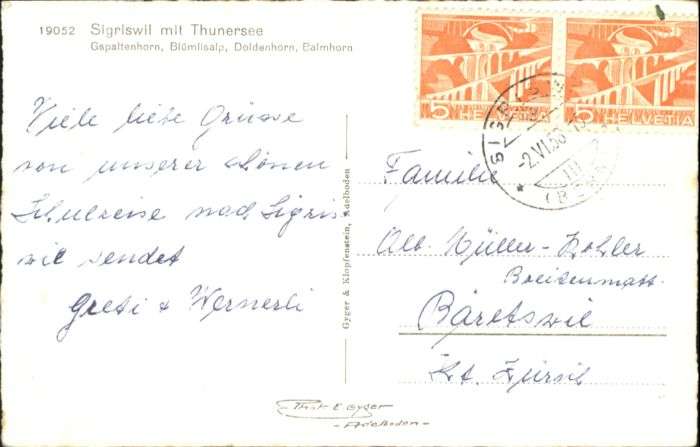 19052 Sigriswil mit Thunersee
Gspaltenhorn, Blümlisalp, Doldenhorn, Balmhorn
Viele liebe Grüsse
von unserer schönen
Schulreise nach Sigris
wil sendet
Greti & Wernerli
Gyger & Klopfenstein, Adelboden
5 HELVETIA
5 HELVETIA
-2.VI.53
Familie
Alb. Müller-Kohler
Breitenmatt.
Bäretswil
Kt. Zürich
Phot E Gyger
- Adelboden -